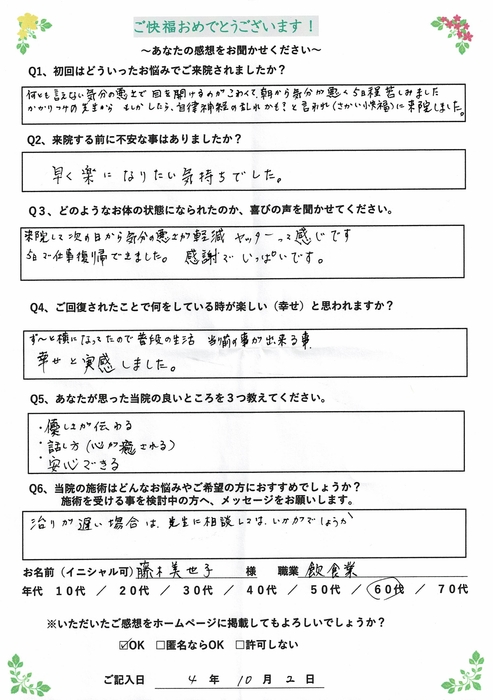 ご快福おめでとうございます！
～あなたの感想をお聞かせください～
Q1、初回はどういったお悩みでご来院されましたか？
何とも言えない気分の悪さで目を開けるのがこわくて、朝から気分が悪く5日程苦しみました
かかりつけの先生から もしかしたら、自律神経の乱れかも？と言われ(さかい快福)に来院しました。
Q2、来院する前に不安な事はありましたか？
早く楽になりたい気持ちでした。
Q３、どのようなお体の状態になられたのか、喜びの声を聞かせてください。
来院して次の日から気分の悪さが軽減 ヤッターって感じです
5日で仕事復帰できました。 感謝でいっぱいです。
Q4、ご回復されたことで何をしている時が楽しい（幸せ）と思われますか？
ず～と横になってたので普段の生活 当り前の事が出来る事
幸せと実感しました。
Q5、あなたが思った当院の良いところを３つ教えてください。
・優しさが伝わる
・話し方(心が癒される)
・安心できる
Q6、当院の施術はどんなお悩みやご希望の方におすすめでしょうか？
施術を受ける事を検討中の方へ、メッセージをお願いします。
治りが遅い場合は、先生に相談しては、いかがでしょうか
お名前（イニシャル可）藤木美世子 様 職業 飲食業
年代 １０代 ／ ２０代 ／ ３０代 ／ ４０代 ／ ５０代 ／ ６０代 ／ ７０代
※いただいたご感想をホームページに掲載してもよろしいでしょうか？
☑OK □匿名ならOK □許可しない
ご記入日 4 年 10 月 2 日